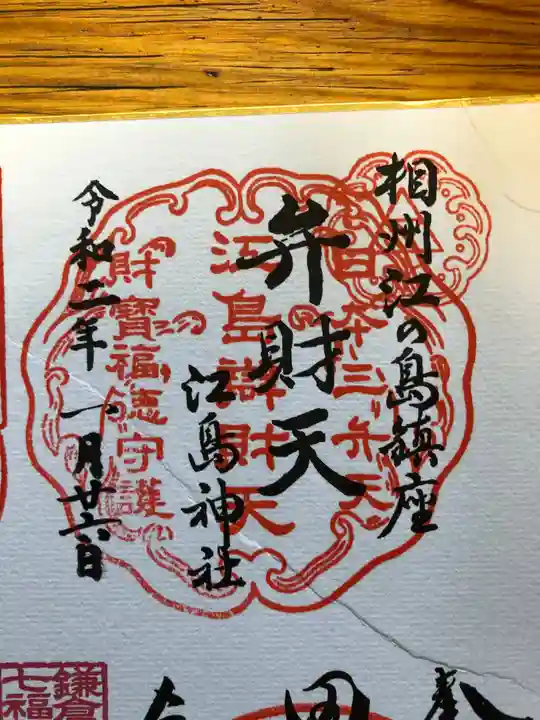 相州江の島鎮座
弁財天
江島神社
令和二年一月廿六日
日本三弁天
江島辯財天
財寶福德守護
鎌倉
七福